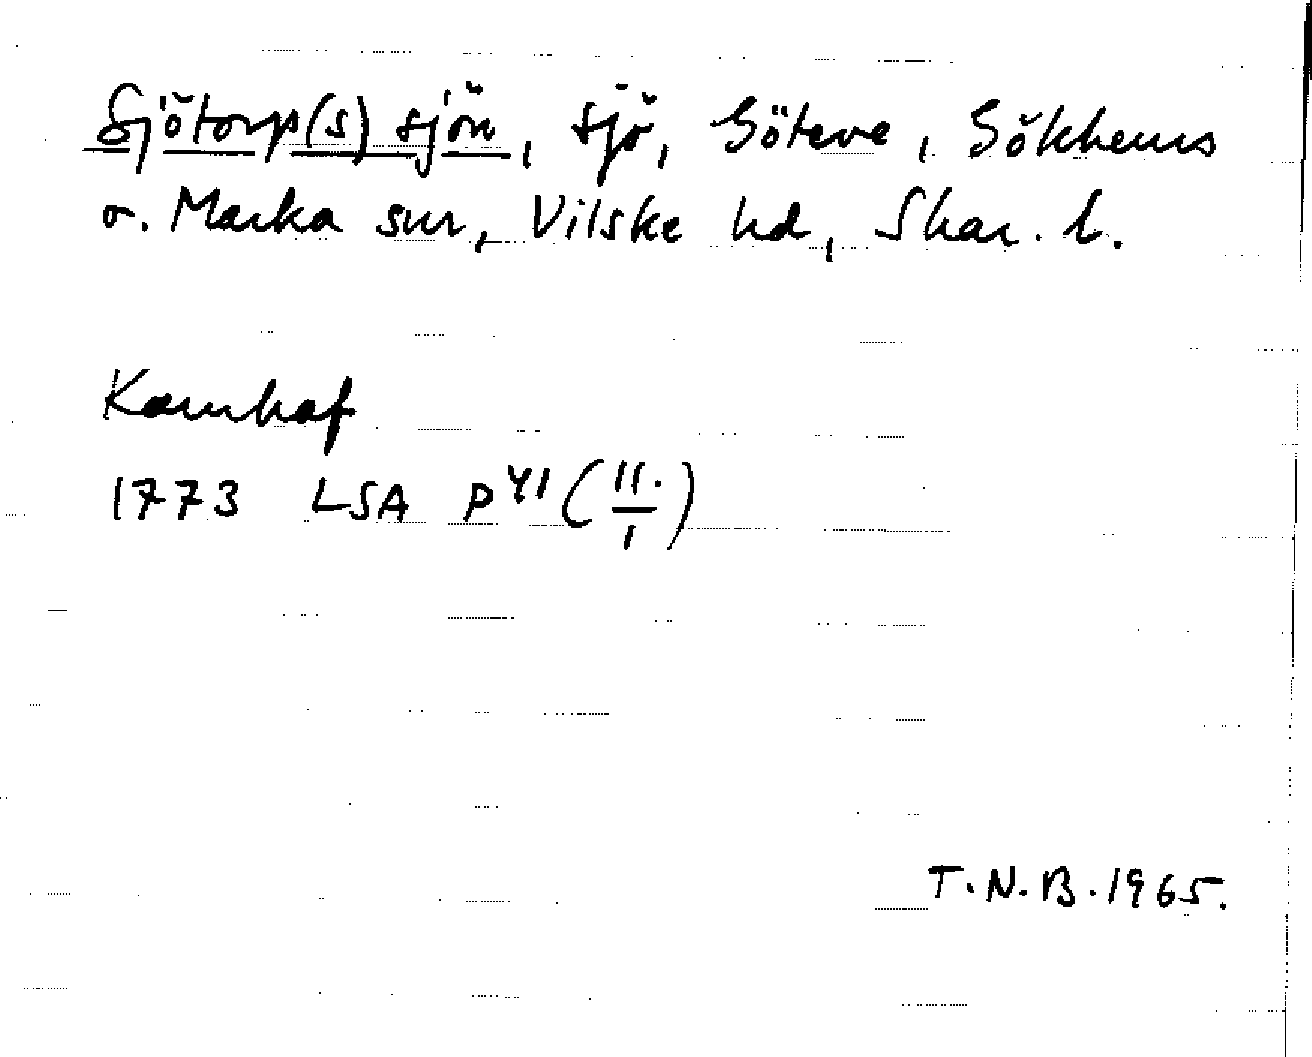 Sjötorp(s)sjön, sjö, Göteve, Gökhems
o. Marka snr, Vilske hd, Skar. l.
Karnhaf
1773 LSA P41 (11./1)
T.N.B. 1965.